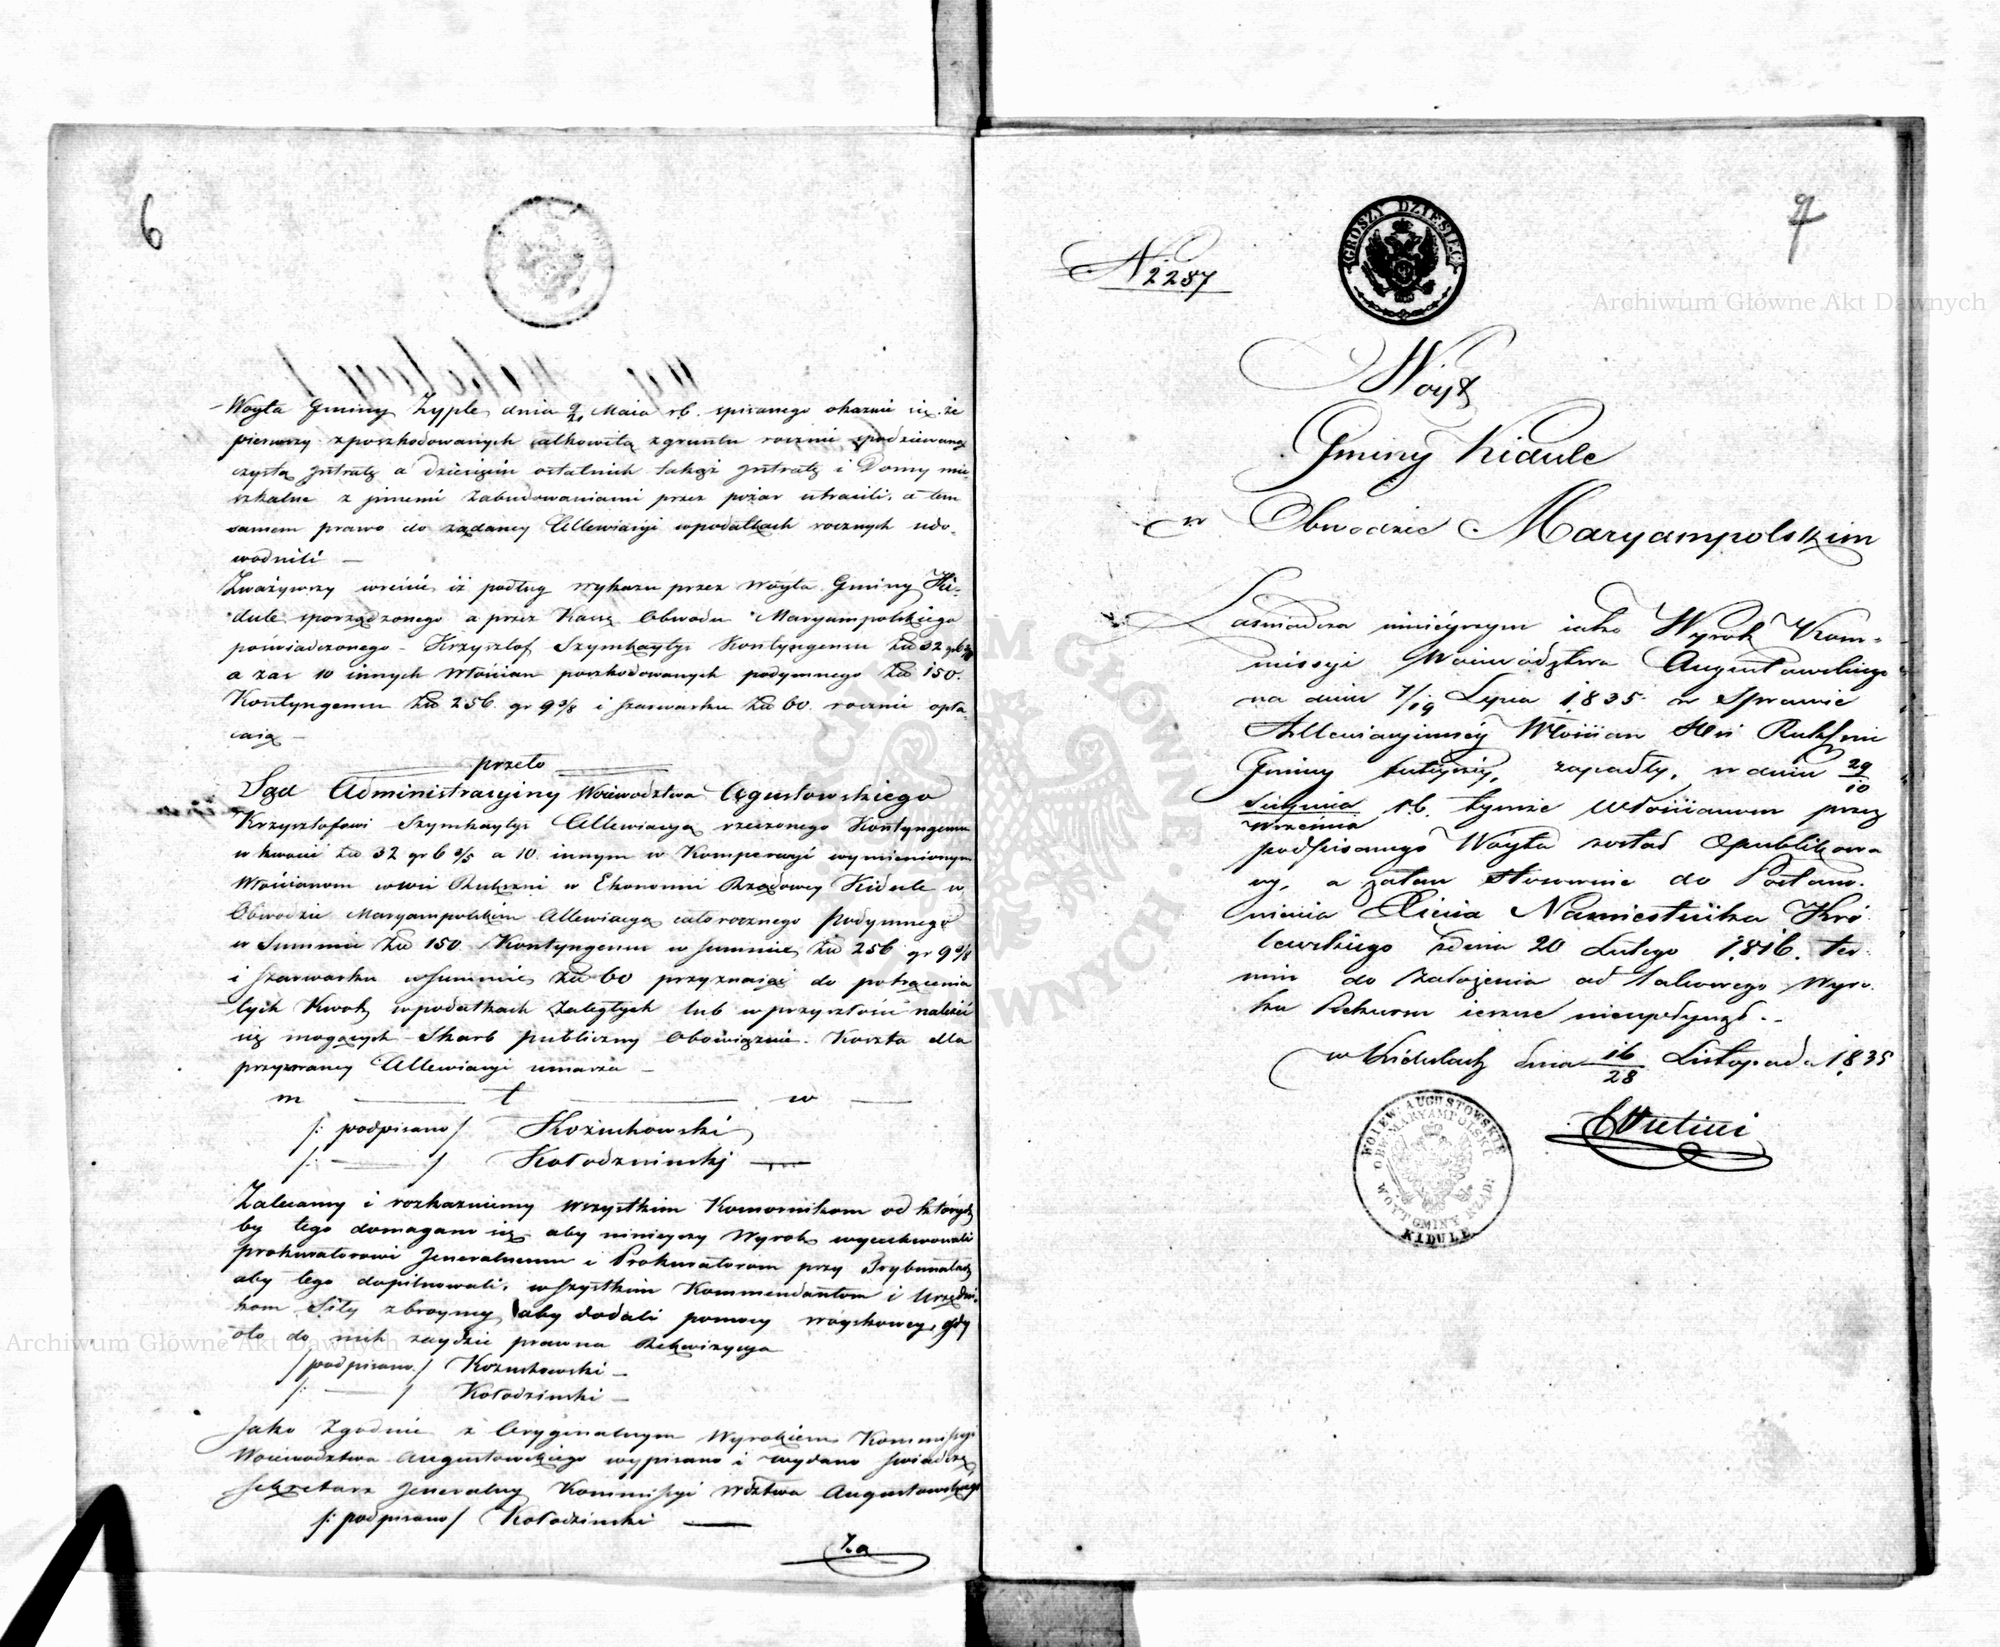 6
Woyta Gminy Zyple dnia 9/21 Maia rb. spisanego okazuie się że
pierwszy z poszkodowanych całkowitą z gruntu rocznie spodziewaną
czystą Jntratę a dziesięciu ostatnich takąż Jntratę i Domy mie-
szkalne z jnnemi Zabudowaniami przez pożar utracili, a tem
samem prawo do żądaney Allewiacyi w podatkach rocznych udo-
wodnili —
Zważywszy wreście iż podług wykazu przez Woyta Gminy Ki-
dule sporządzonego a przez Kassę Obwodu Maryampolskiego
poświadczonego - Krzysztof Szymkaytys Kontyngensu Zł 32
a zaś 10 innych Włościan poszkodowanych podymnego Zł 150.
Kontyngensu Zł 256. gr 9 3/8 i szarwarku Zł 60. rocznie opła-
caią —
przeto
Sąd Administracyiny Woiewodztwa Augustowskiego
Krzysztofowi Szymkaytys Allewiacyą rzeczonego Kontyngensu
w kwocie Zł 32 gr 6 3/5 a 10. innym w Komparycyi wymienionym
Włościanom wsi Rukszni w Ekonomii Rządowey Kidule w
Obwodzie Maryampolskim Allewiacyą całorocznego Podymnego
w Summie Zł 150 Kontyngensu w summie Zł 256 gr 9 3/8
i szarwarku w summie Zł 60 przyznaiąc do potrącenia
tych Kwot w podatkach Zaległych lub w przyszłości należeć
się mogących Skarb publiczny obowiązuie. Koszta dla
przyznaney Allewiacyi umarza —
m — t — w —
/: podpisano/ Kożuchowski
/: — / Kołodzinski —
Zalecamy i rozkazuiemy wszystkim Komornikom od których
by tego domagano się aby ninieyszy Wyrok wyexekwowali
Prokuratorowi Jeneralnemu i Prokuratorom przy Trybunałach
aby tego dopilnowali, wszystkim Kommendantom i Urzędni-
kom Siły zbroyney aby dodali pomocy woyskowey, gdy
o to do nich zaydzie prawna Rekwizycya
/podpisano/ Kożuchowski —
/: — / Kołodzinski —
Jako Zgodnie z Oryginalnym Wyrokiem Kommissyi
Woiewodztwa Augustowskiego wypisano i wydano świadczę
Sekretarz Jeneralny Kommissyi Wdztwa Augustowskiego
/: podpisano/ Kołodzinski —
Za
7
N 2287
GROSZY DZIESIEC
Woyt
Gminy Kidule
w Obwodzie Maryampolskim
Zaswiadcza ninieyszym iako Wyrok Kom-
missyi Woiewództwa Augustowskiego
na dniu 7/19 Lipca 1835 w Sprawie
Allewiacyiney Włościan Wsi Rukszni
Gminy tuteyszey, zapadły, w dniu 29/10
Sierpnia
Września rb. tymże Włościanom przez
podpisanego Woyta został Opublikowa
ny, a zatem Stosownie do Postano-
wienia Xięcia Namiestnika Kró-
lewskiego z dnia 20 Lutego 1816. ter-
min do Założenia od takowego Wyro-
ku Rekursu ieszcze nieupłynął. -
w Kidulach dnia 16/28 Listopada 1835
WOIEW: AUGUSTOWSKIE
OBW: MARYAMPOLSKI
WOYT GMINY RZĄD:
KIDULE